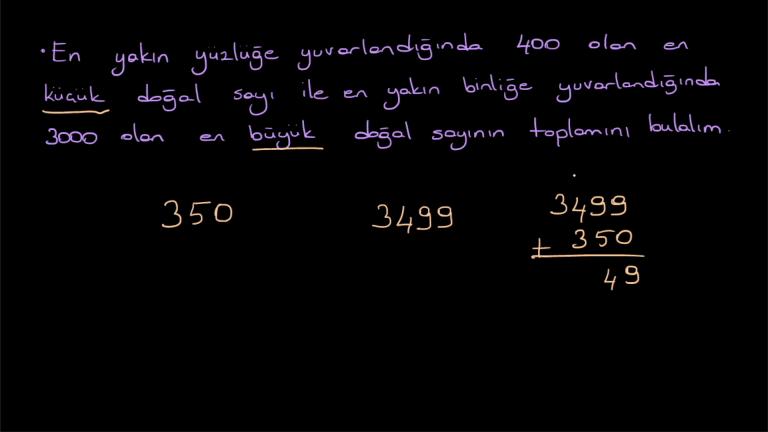 • En yakın yüzlüğe yuvarlandığında 400 olan en
küçük doğal sayı ile en yakın binliğe yuvarlandığında
3000 olan en büyük doğal sayının toplamını bulalım.
350 3499 3499
+ 350
49